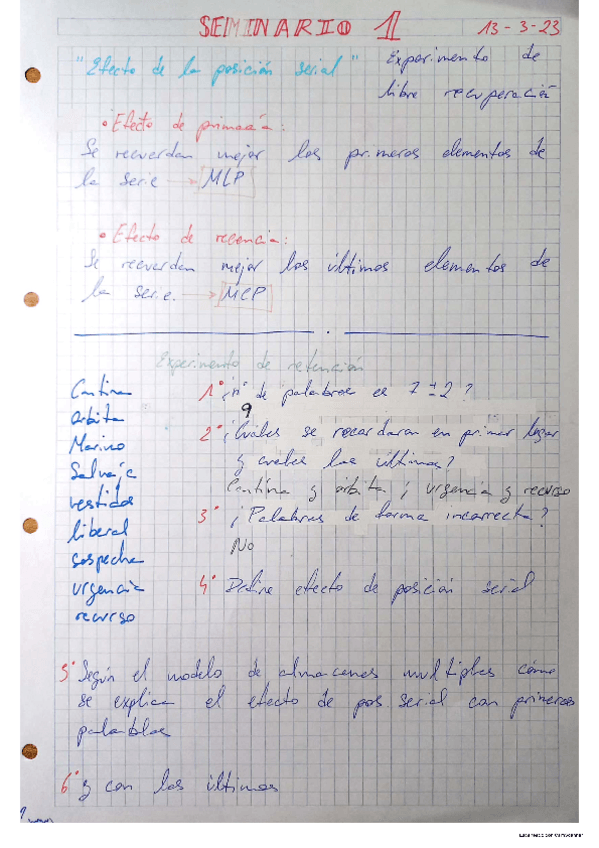 SEMINARIO 1 13-3-23
"Efecto de la posición serial" Experimento de
libre recuperación
• Efecto de primacía:
Se recuerdan mejor los primeros elementos de
la serie → MLP
• Efecto de recencia:
Se recuerdan mejor los últimos elementos de
la serie. → MCP
Experimento de retención
Cantina
órbita
Marino
Salvaje
vestidos
liberal
sospecha
urgencia
recurso
1° ¿nº de palabras es 7±2?
9
2° ¿Cuáles se recordaran en primer lugar
y cuales las últimas?
Cantina y órbita; urgencia y recurso
3° ¿Palabras de forma incorrecta?
No
4° Define efecto de posición serial
5° Según el modelo de almacenes multiples cómo
se explica el efecto de pos. serial con primeras
palabras
6° y con las últimas